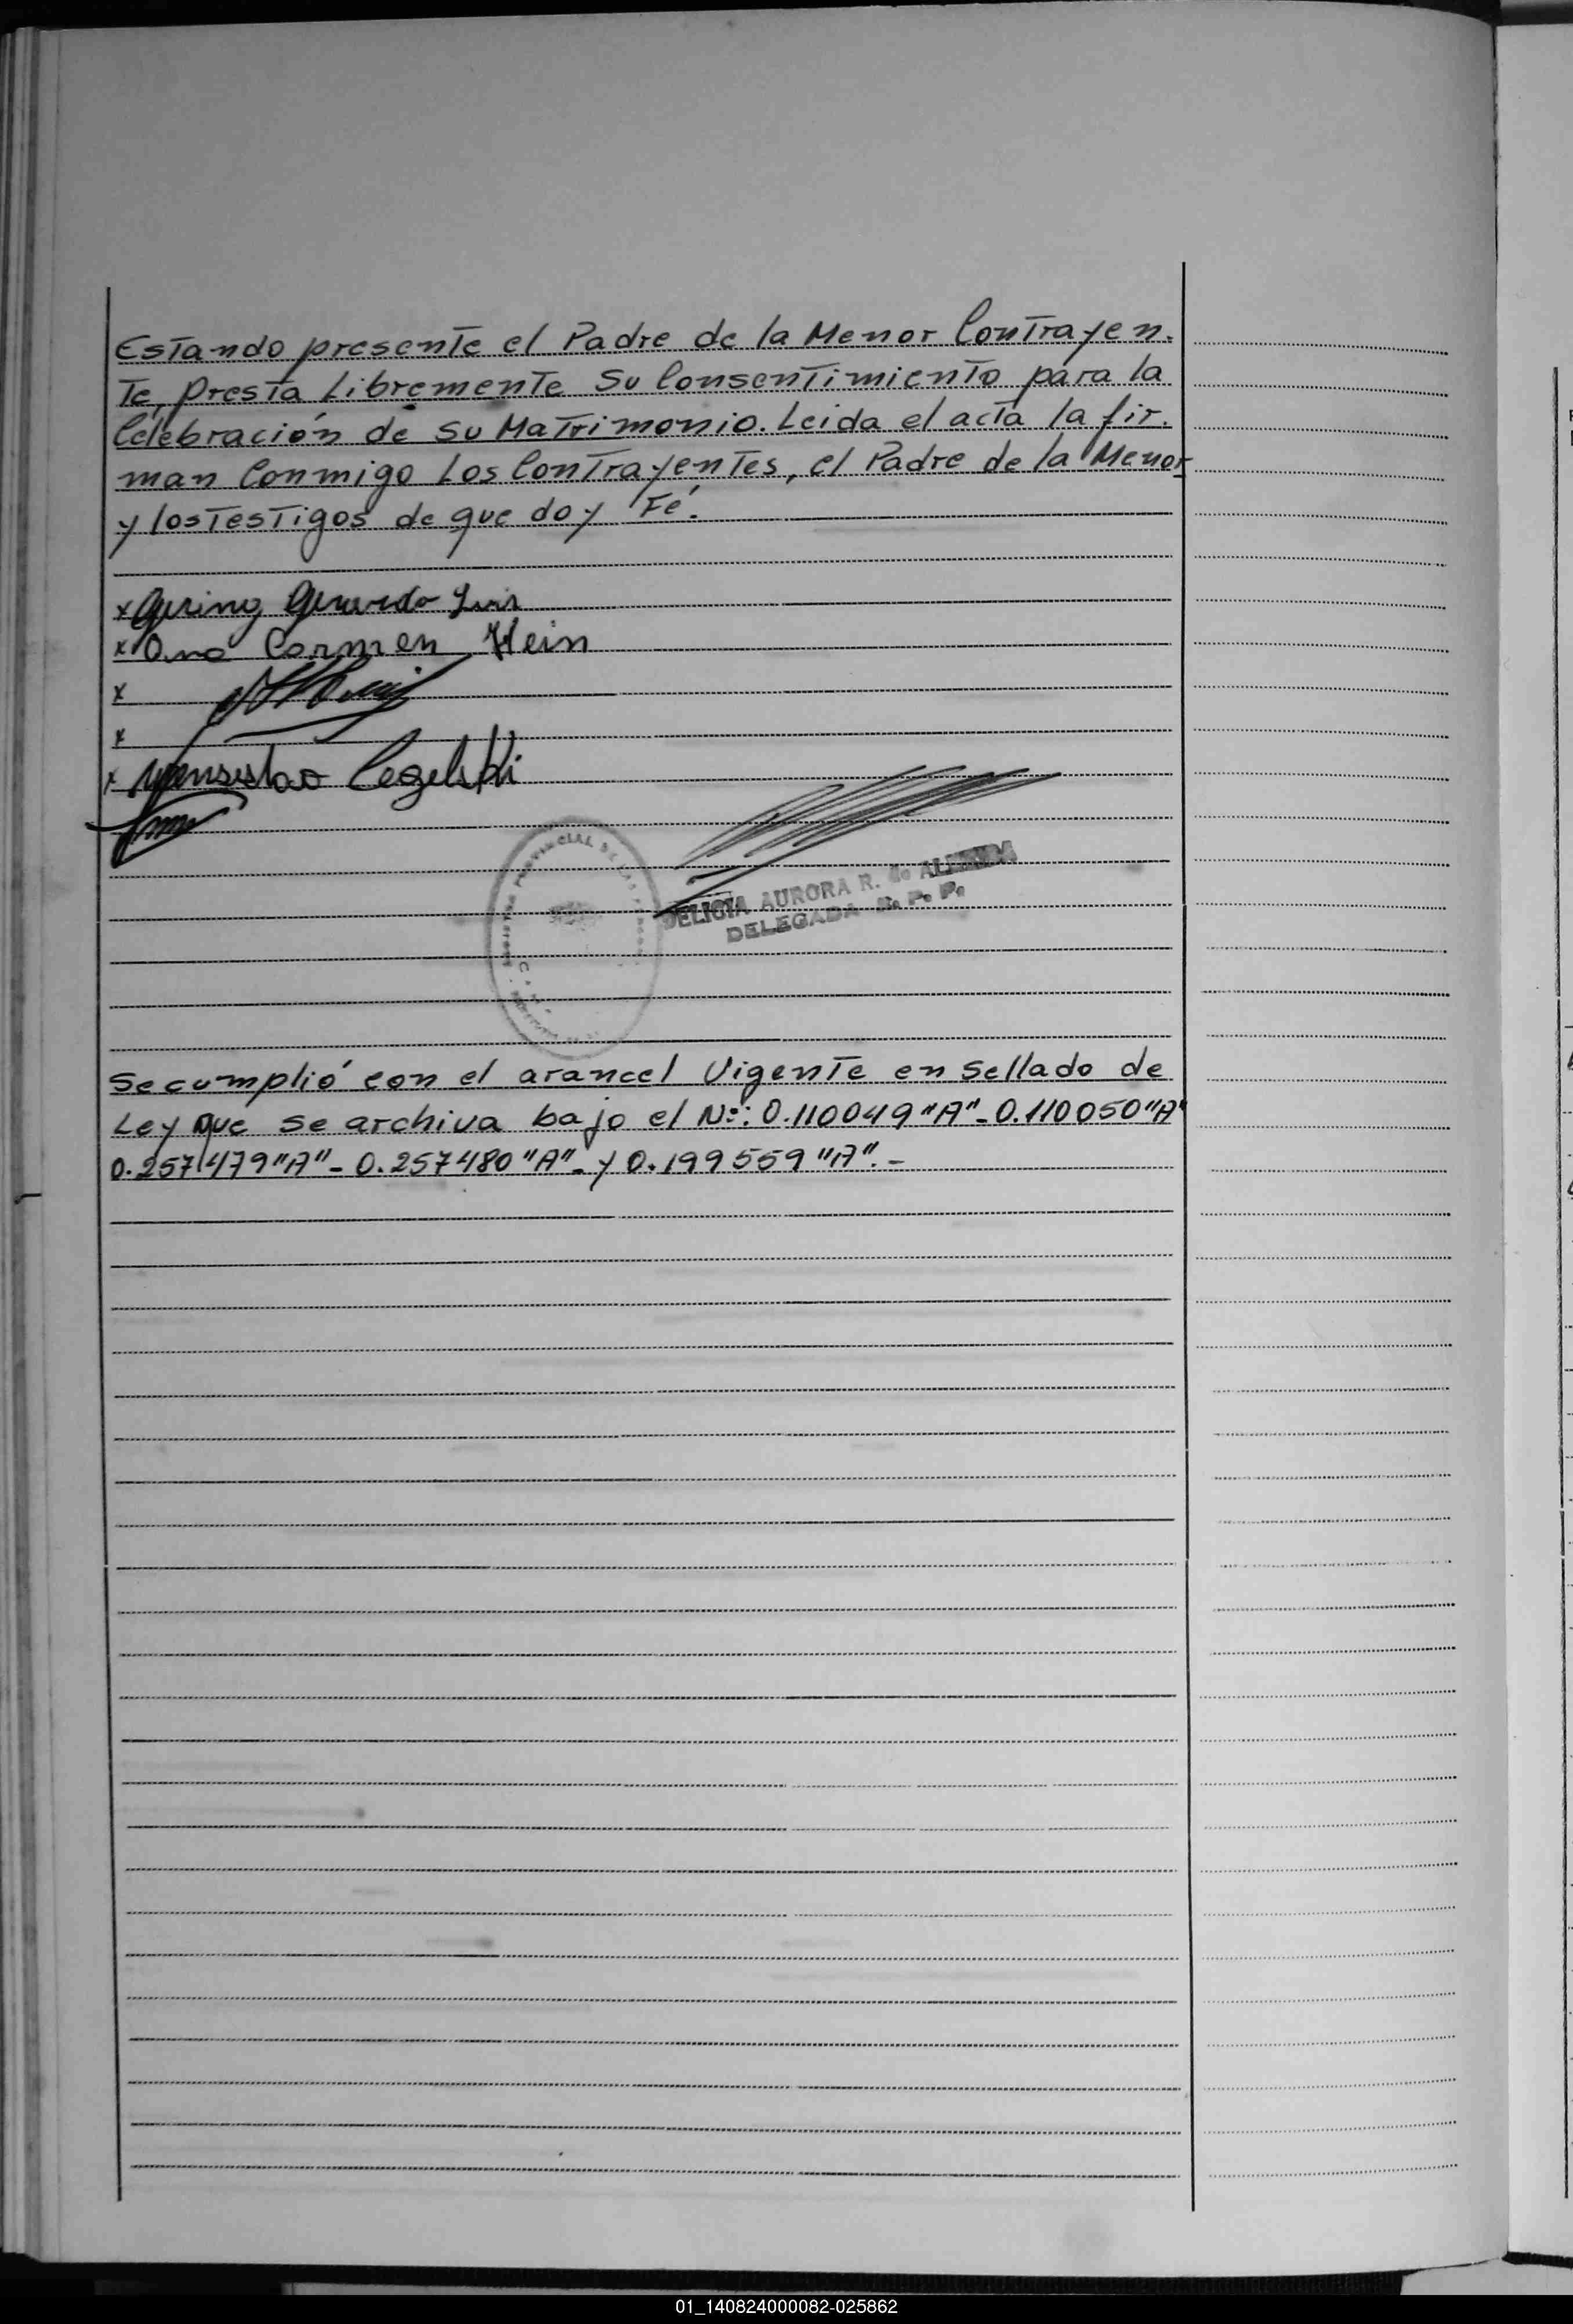 Estando presente el Padre de la Menor Contrayen.
Te, Presta Libremente Su Consentimiento para la
Celebración de su Matrimonio. Leida el acta la fir.
man Conmigo Los Contrayentes, el Padre de la Menor
y los Testigos de que doy Fé.
x Gering Gerardo Luis
x Ana Carmen Hein
x
x
x Wenseslao Cegelski
DELICIA AURORA R. de
DELEGADA R. P. P.
Se cumplió con el arancel Vigente en Sellado de
Ley que se archiva bajo el Nº: 0.110049 "A" - 0.110050 "A"
0.257479 "A" - 0.257480 "A" - y 0.199559 "A". -
01_140824000082-025862